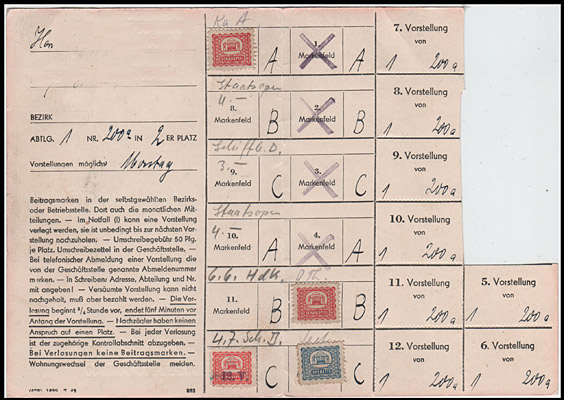 Herr
BEZIRK
ABTLG. 1 NR. 200a IN 2 ER PLATZ
Vorstellungen möglichst Montag
Beitragsmarken in der selbstgewählten Bezirks-
oder Betriebsstelle. Dort auch die monatlichen Mit-
teilungen. — Im Notfall (!) kann eine Vorstellung
verlegt werden, sie ist unbedingt bis zur nächsten Vor-
stellung nachzuholen. — Umschreibegebühr 50 Pfg.
je Platz. Umschreibezettel in der Geschäftsstelle. —
Bei telefonischer Abmeldung einer Vorstellung die
von der Geschäftsstelle genannte Abmeldenummer
m. — in Schreiben: Adresse, Abteilung und Nr.
mit angeben! — Versäumte Vorstellung kann nicht
nachgeholt, muß aber bezahlt werden. — Die Ver-
losung beginnt ¾ Stunde vor, endet fünf Minuten vor
Anfang der Vorstellung. — Nachzügler haben keinen
Anspruch auf einen Platz. — Bei jeder Verlosung
ist der zugehörige Kontrollabschnitt abzugeben. —
Bei Verlosungen keine Beitragsmarken. —
Wohnungswechsel der Geschäftsstelle melden.
A
1.
Markenfeld
A
7. Vorstellung
von
1 200a
Staatsoper
4.—
8.
Markenfeld
B
2.
Markenfeld
B
8. Vorstellung
von
1 200a
Schiffb. D.
3.—
9.
Markenfeld
C
3.
Markenfeld
C
9. Vorstellung
von
1 200a
Staatsoper
4.—
10.
Markenfeld
A
4.
Markenfeld
A
10. Vorstellung
von
1 200a
6.6. Hdk.
11.
Markenfeld
B
B
11. Vorstellung
von
1 200a
5. Vorstellung
von
1 200a
4.7. Sch. D.
C
C
12. Vorstellung
von
1 200a
6. Vorstellung
von
1 200a